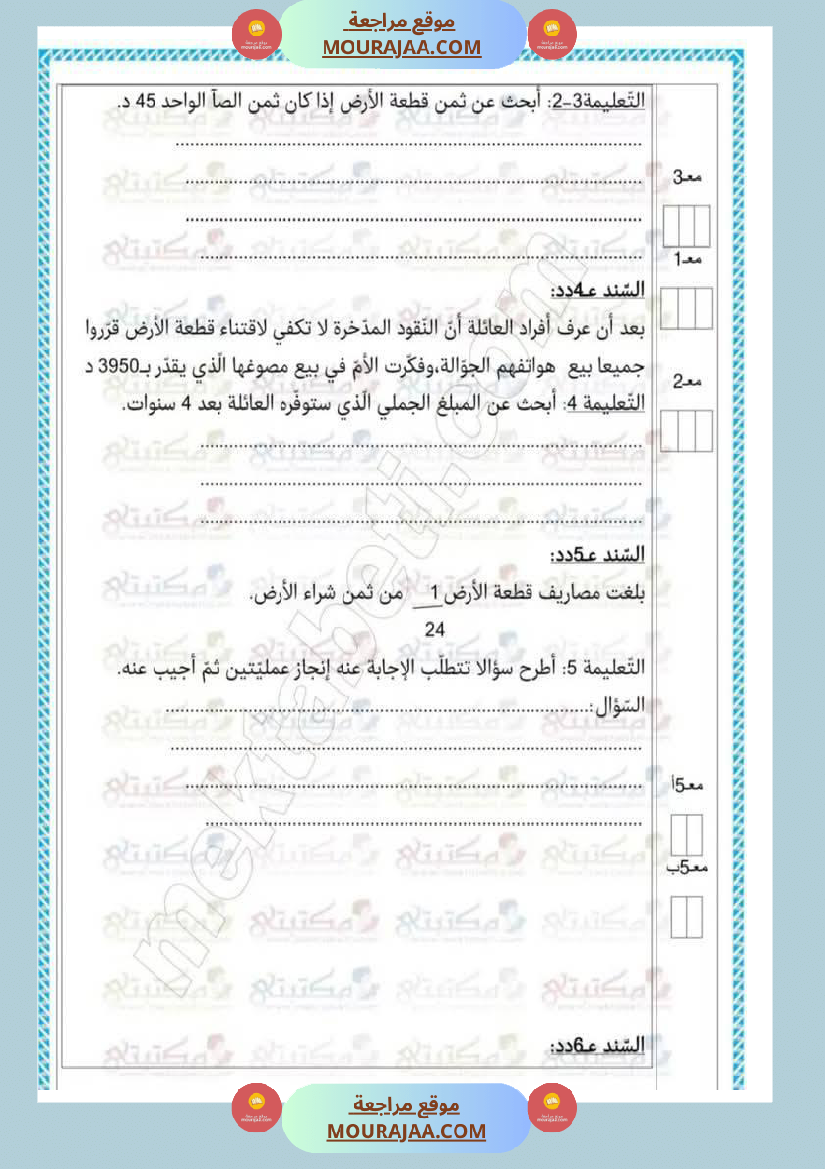 موقع مراجعة
MOURAJAA.COM
التّعليمة3-2: أبحث عن ثمن قطعة الأرض إذا كان ثمن الصآ الواحد 45 د.
معـ3
معـ1
السّند عـ4دد:
بعد أن عرف أفراد العائلة أنّ النّقود المدّخرة لا تكفي لاقتناء قطعة الأرض قرّروا
جميعا بيع هواتفهم الجوّالة،وفكّرت الأمّ في بيع مصوغها الّذي يقدّر بـ3950 د
معـ2
التّعليمة 4: أبحث عن المبلغ الجملي الّذي ستوفّره العائلة بعد 4 سنوات.
السّند عـ5دد:
بلغت مصاريف قطعة الأرض 1 من ثمن شراء الأرض.
24
التّعليمة 5: أطرح سؤالا تتطلّب الإجابة عنه إنجاز عمليّتين ثمّ أجيب عنه.
السّؤال:
معـ5أ
معـ5ب
السّند عـ6دد:
mektabeti.com
موقع مراجعة
MOURAJAA.COM